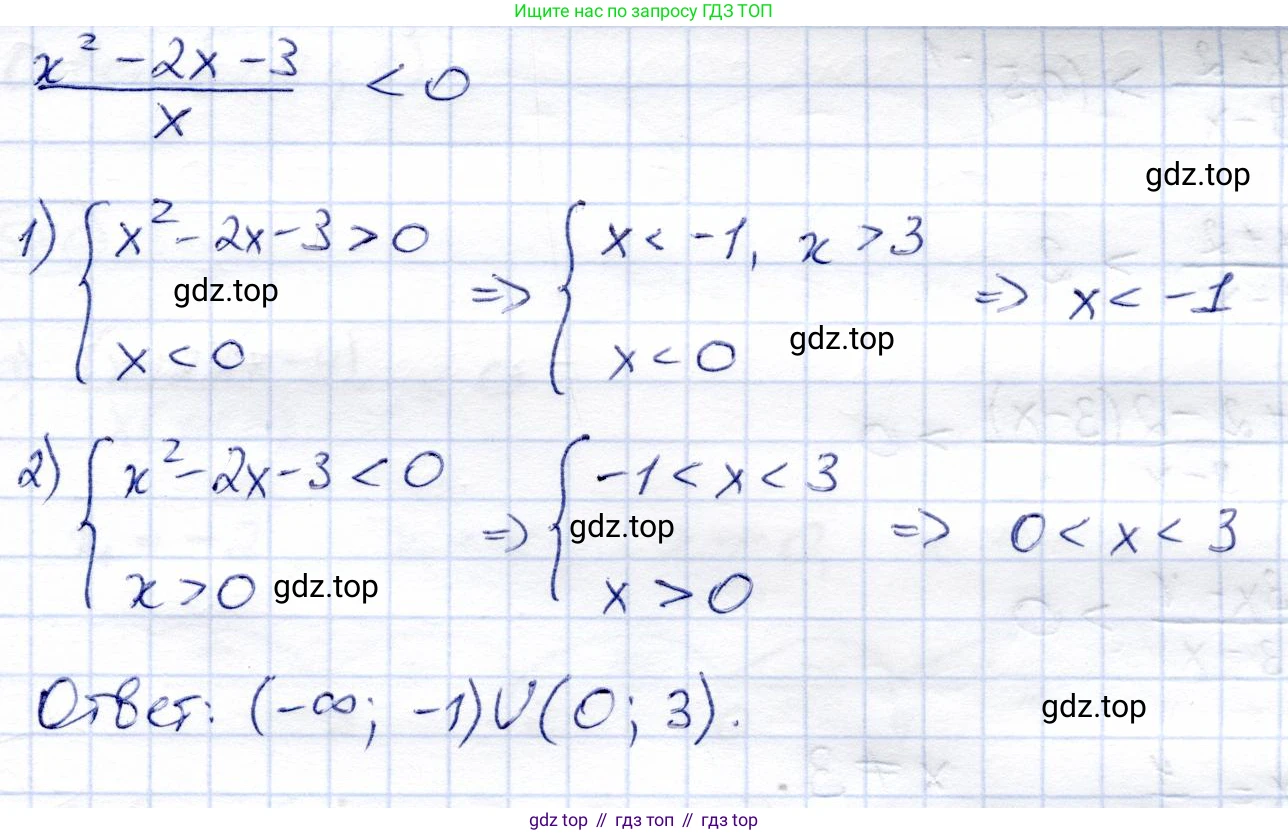 Ищите нас по запросу ГДЗ ТОП
x² - 2x - 3
——— < 0
x
gdz.top
1) { x² - 2x - 3 > 0 => { x < -1, x > 3 => x < -1
gdz.top
x < 0 x < 0
gdz.top
2) { x² - 2x - 3 < 0 => { -1 < x < 3 => 0 < x < 3
gdz.top
x > 0 x > 0
gdz.top
Ответ: (-∞; -1) ∪ (0; 3).
gdz.top
gdz топ // гдз топ // гдз top